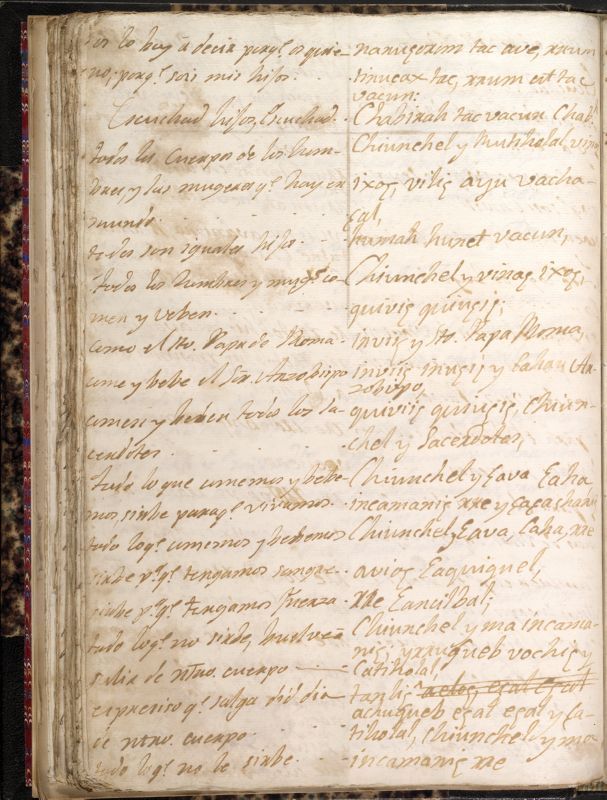 os lo hay a decir porq.e os quie-
ro; porq.e sois mis hijos.
Escuchad hijos, Escuchad.
todos los Cuerpos de los hom-
bres, y las mugeres q.e hay en
mundo.
todos son iguales hijos.
todos los hombres y mug.s co-
men y veben.
come el Sto. Papa de Roma
come y bebe el Sr. Arzobispo
comen y beben todos los Sa-
cerdotes.
todo lo que comemos y bebe-
mos, sirbe para q.e vivamos.
todo loq.e comemos y bebemos
sirbe p.a q.e tengamos sangre.
sirbe p.a q.e tengamos fuerza.
todo loq.e no sirbe, buelve a
salir de ntro. cuerpo
es preciso q.e salga
de ntro. cuerpo.
todo loq.e no le sirbe.
tac ave, xrum
tac, xrum cat tac
vacun:
Chabixah tac vacun Chab.
Chiunchel y Mutiholal, vina
ixoc, vilic ayu vacha-
cal,
humah hunet vacun,
Chiunchel y vinac ixoc,
quivic quiucic;
invic y Sto. Papa Roma,
inviic inucic y Cahau Ar-
zobispo,
quiviic quiucic, Chiun-
chel y Sacerdotes,
Chiunchel y Cava Caha
incamanic xxe y
Chiunchel Cava, Caha, xxe
avioc Caquiquel,
xxe Cancilbal;
Chiunchel y ma incama-
nic; vochic y
Catihola!
tanlic
acuqueb egal egal y Ca-
tiholal, Chiunchel y ma
incamanic xxe